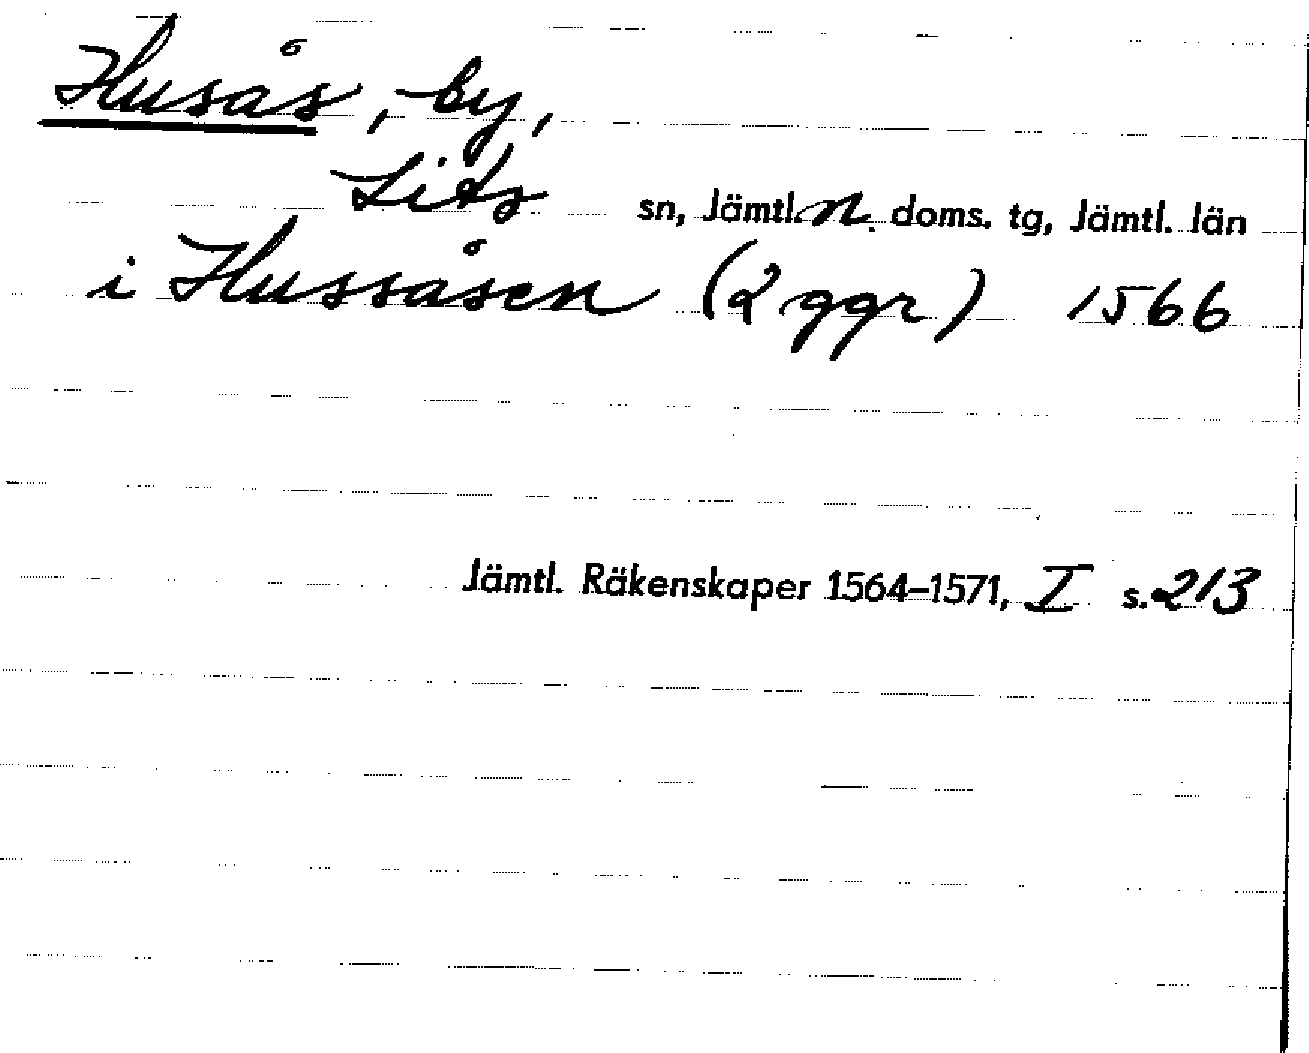 Husås, by,
Lits sn, Jämtl. n. doms. tg, Jämtl. län
i Hussåsen (2 ggr) 1566
Jämtl. Räkenskaper 1564–1571, I s. 213